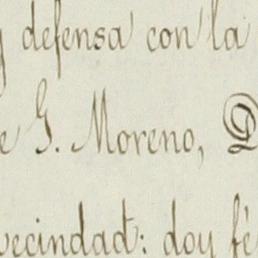 y defensa con la
e G. Moreno, D
vecindad: doy fé